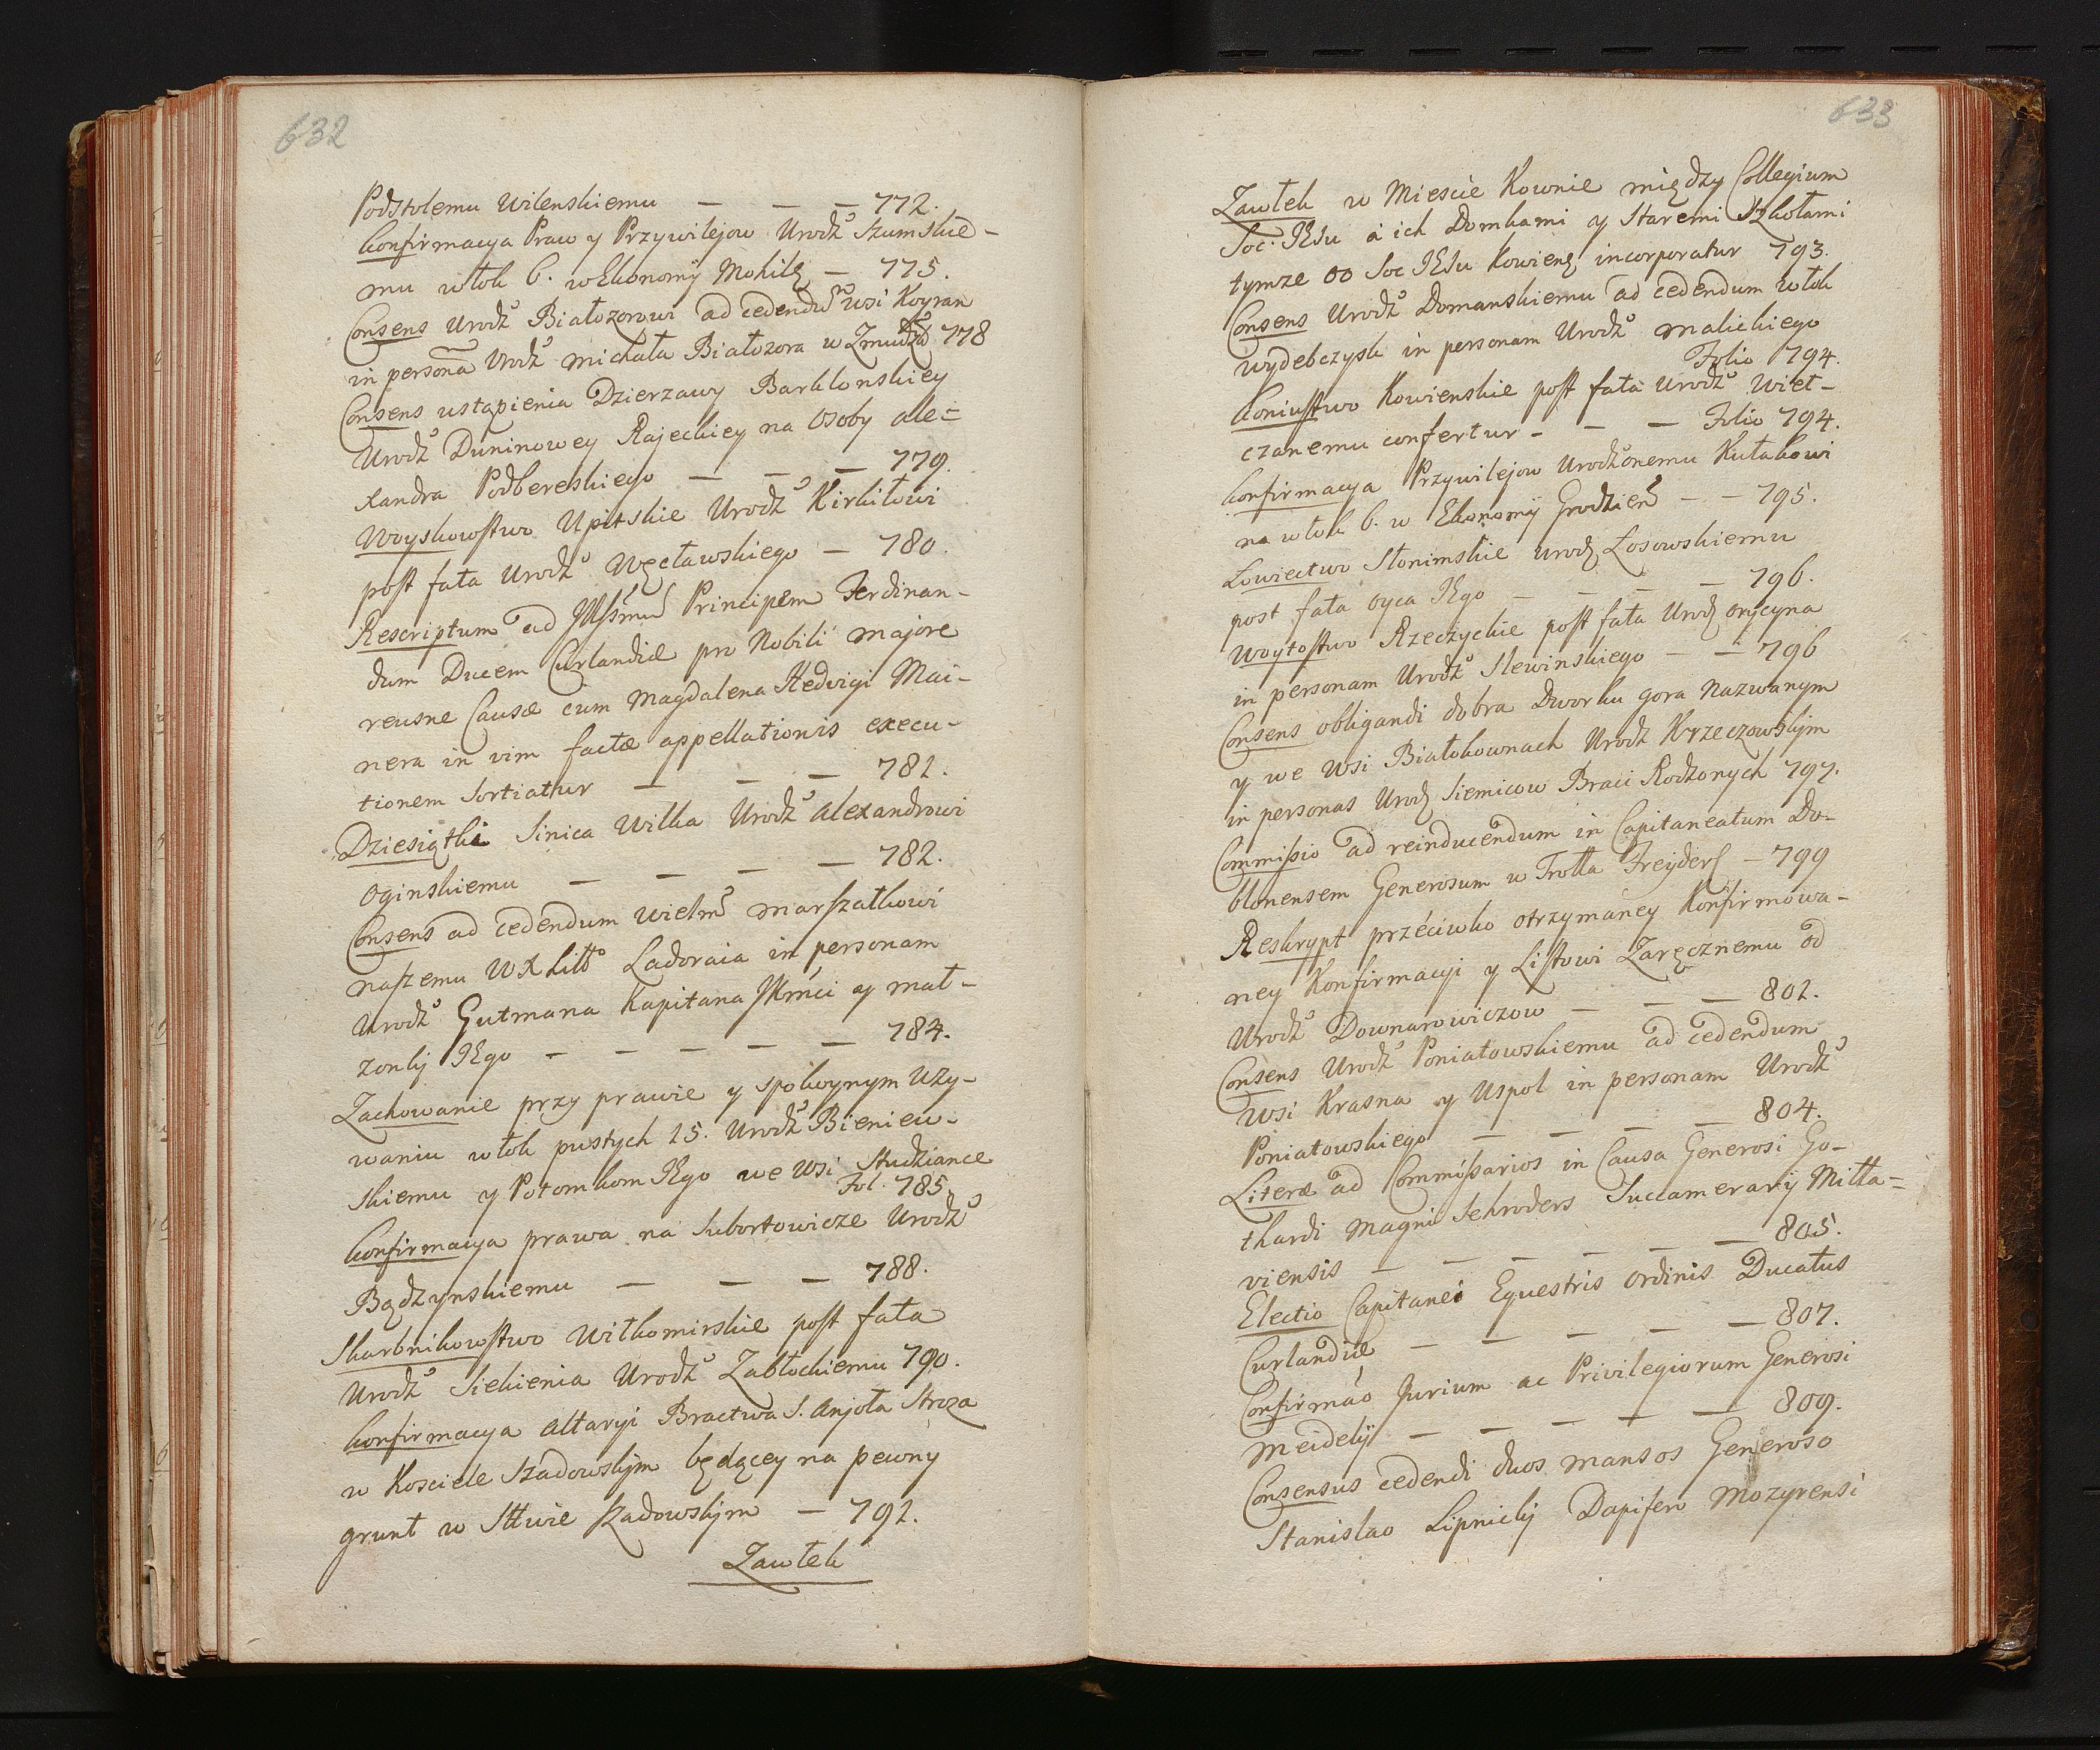 632
Podstolemu Wilenskiemu — — — 772.
Konfirmacya Praw y Przywilejow Urodz° Szumskie-
mu włok 6. w Ekonomÿ Mohilę — 775.
Consens Urodz° Białozorowi ad cedendū wsi Koyran
in personā Urodz° Michała Białozora w Zmudzi 778
Consens ustąpienia Dzierzawy Barklonskiey
Urodz° Duninowey Rajeckiey na Osoby Ale=
xandra Podbereskiego — — — 779.
Woyskowstwo Upitskie Urodz° Kirkiłowi
post fata Urodz° Węcławskiego — 780.
Rescriptum ad Illssmū Principem Ferdinan-
dum Ducem Curlandiæ pro Nobili majore
reusne Causæ cum Magdalena Hedvigi Mai-
nera in vim factæ appellationis execu-
tionem sortiatur — — — 781.
Dziesiątki Sinica Wilka Urodz° Alexandrowi
Oginskiemu — — — — 782.
Consens ad cedendum Wielm° Marszałkowi
naszemu WX Litt° Ladoraia in personam
Urodz° Gutmana Kapitana JKmci y mał-
zonkÿ JEgo — — — — — 784.
Zachowanie przy prawie y spokoynym Uzy-
waniu włok pustych 15. Urodz° Bieniew-
skiemu y Potomkom JEgo we Wsi Studziance
Fol. 785.
Konfirmacya prawa na Subortowicze Urodz°
Bądzynskiemu — — — 788.
Skarbnikowstwo Wiłkomirskie post fata
Urodz° Siekienia Urodz° Zabłockiemu 790.
Konfirmacya Altaryi Bractwa S. Anjoła Stroza
w Kosciele Szadowskÿm będącey na pewny
grunt w Sttwie Szadowskÿm — 792.
Zawłek
633
Zawłek w Miescie Kownie między Collegium
Soc. JEsu a ich Domkami y Staremi Szkołami
tymze OO Soc JEsu Kowienę incorporatur 793.
Consens Urodz° Domanskiemu ad cedendum Włok
wydebczysk in personam Urodz° Malickiego
Folio 794.
Koniustwo Kowienskie post fata Urodz° Wiet-
czanemu confertur — — — Folio 794.
Konfirmacya Przywilejow Urodzonemu Kułakowi
na włok 6. w Ekonomÿ Grodzień — — 795.
Łowiectwo Słonimskie Urodz Łosowskiemu
post fata Oyca JEgo — — — — 796.
Woytostwo Rzeczyckie post fata Urodz Orycyna
in personam Urodz° Slewinskiego — — 796
Consens obligandi dobra Dworku gora Nazwanym
y we Wsi Białokownach Urodz Krzeczowskÿm
in personas Urodz Siemicow Braci Rodzonych 797.
Commissio ad reinducendum in Capitaneatum Do-
blonensem Generosum w Trotta Freÿder — 799
Reskrypt przeciwko otrzymaney Konfirmowa-
ney Konfirmacyi y Listowi Zaręcznemu od
Urodz° Downarowiczow — — — 802.
Consens Urodz° Poniatowskiemu ad cedendum
Wsi Krasna y Uspol in personam Urodz°
Poniatowskiego — — — — 804.
Literæ ad Commissarios in Causa Generosi Go-
thardi Magni Schroders Succamerarÿ Mitta=
viensis — — — — — — 805.
Electio Capitanei Equestris Ordinis Ducatus
Curlandiæ — — — — — 807.
Confirmão Jurium ac Privilegiorum Generosi
Meidelÿ — — — — — 809.
Consensus cedendi duos mansos Generoso
Stanislao Lipnickÿ Dapifero Mozyrensi